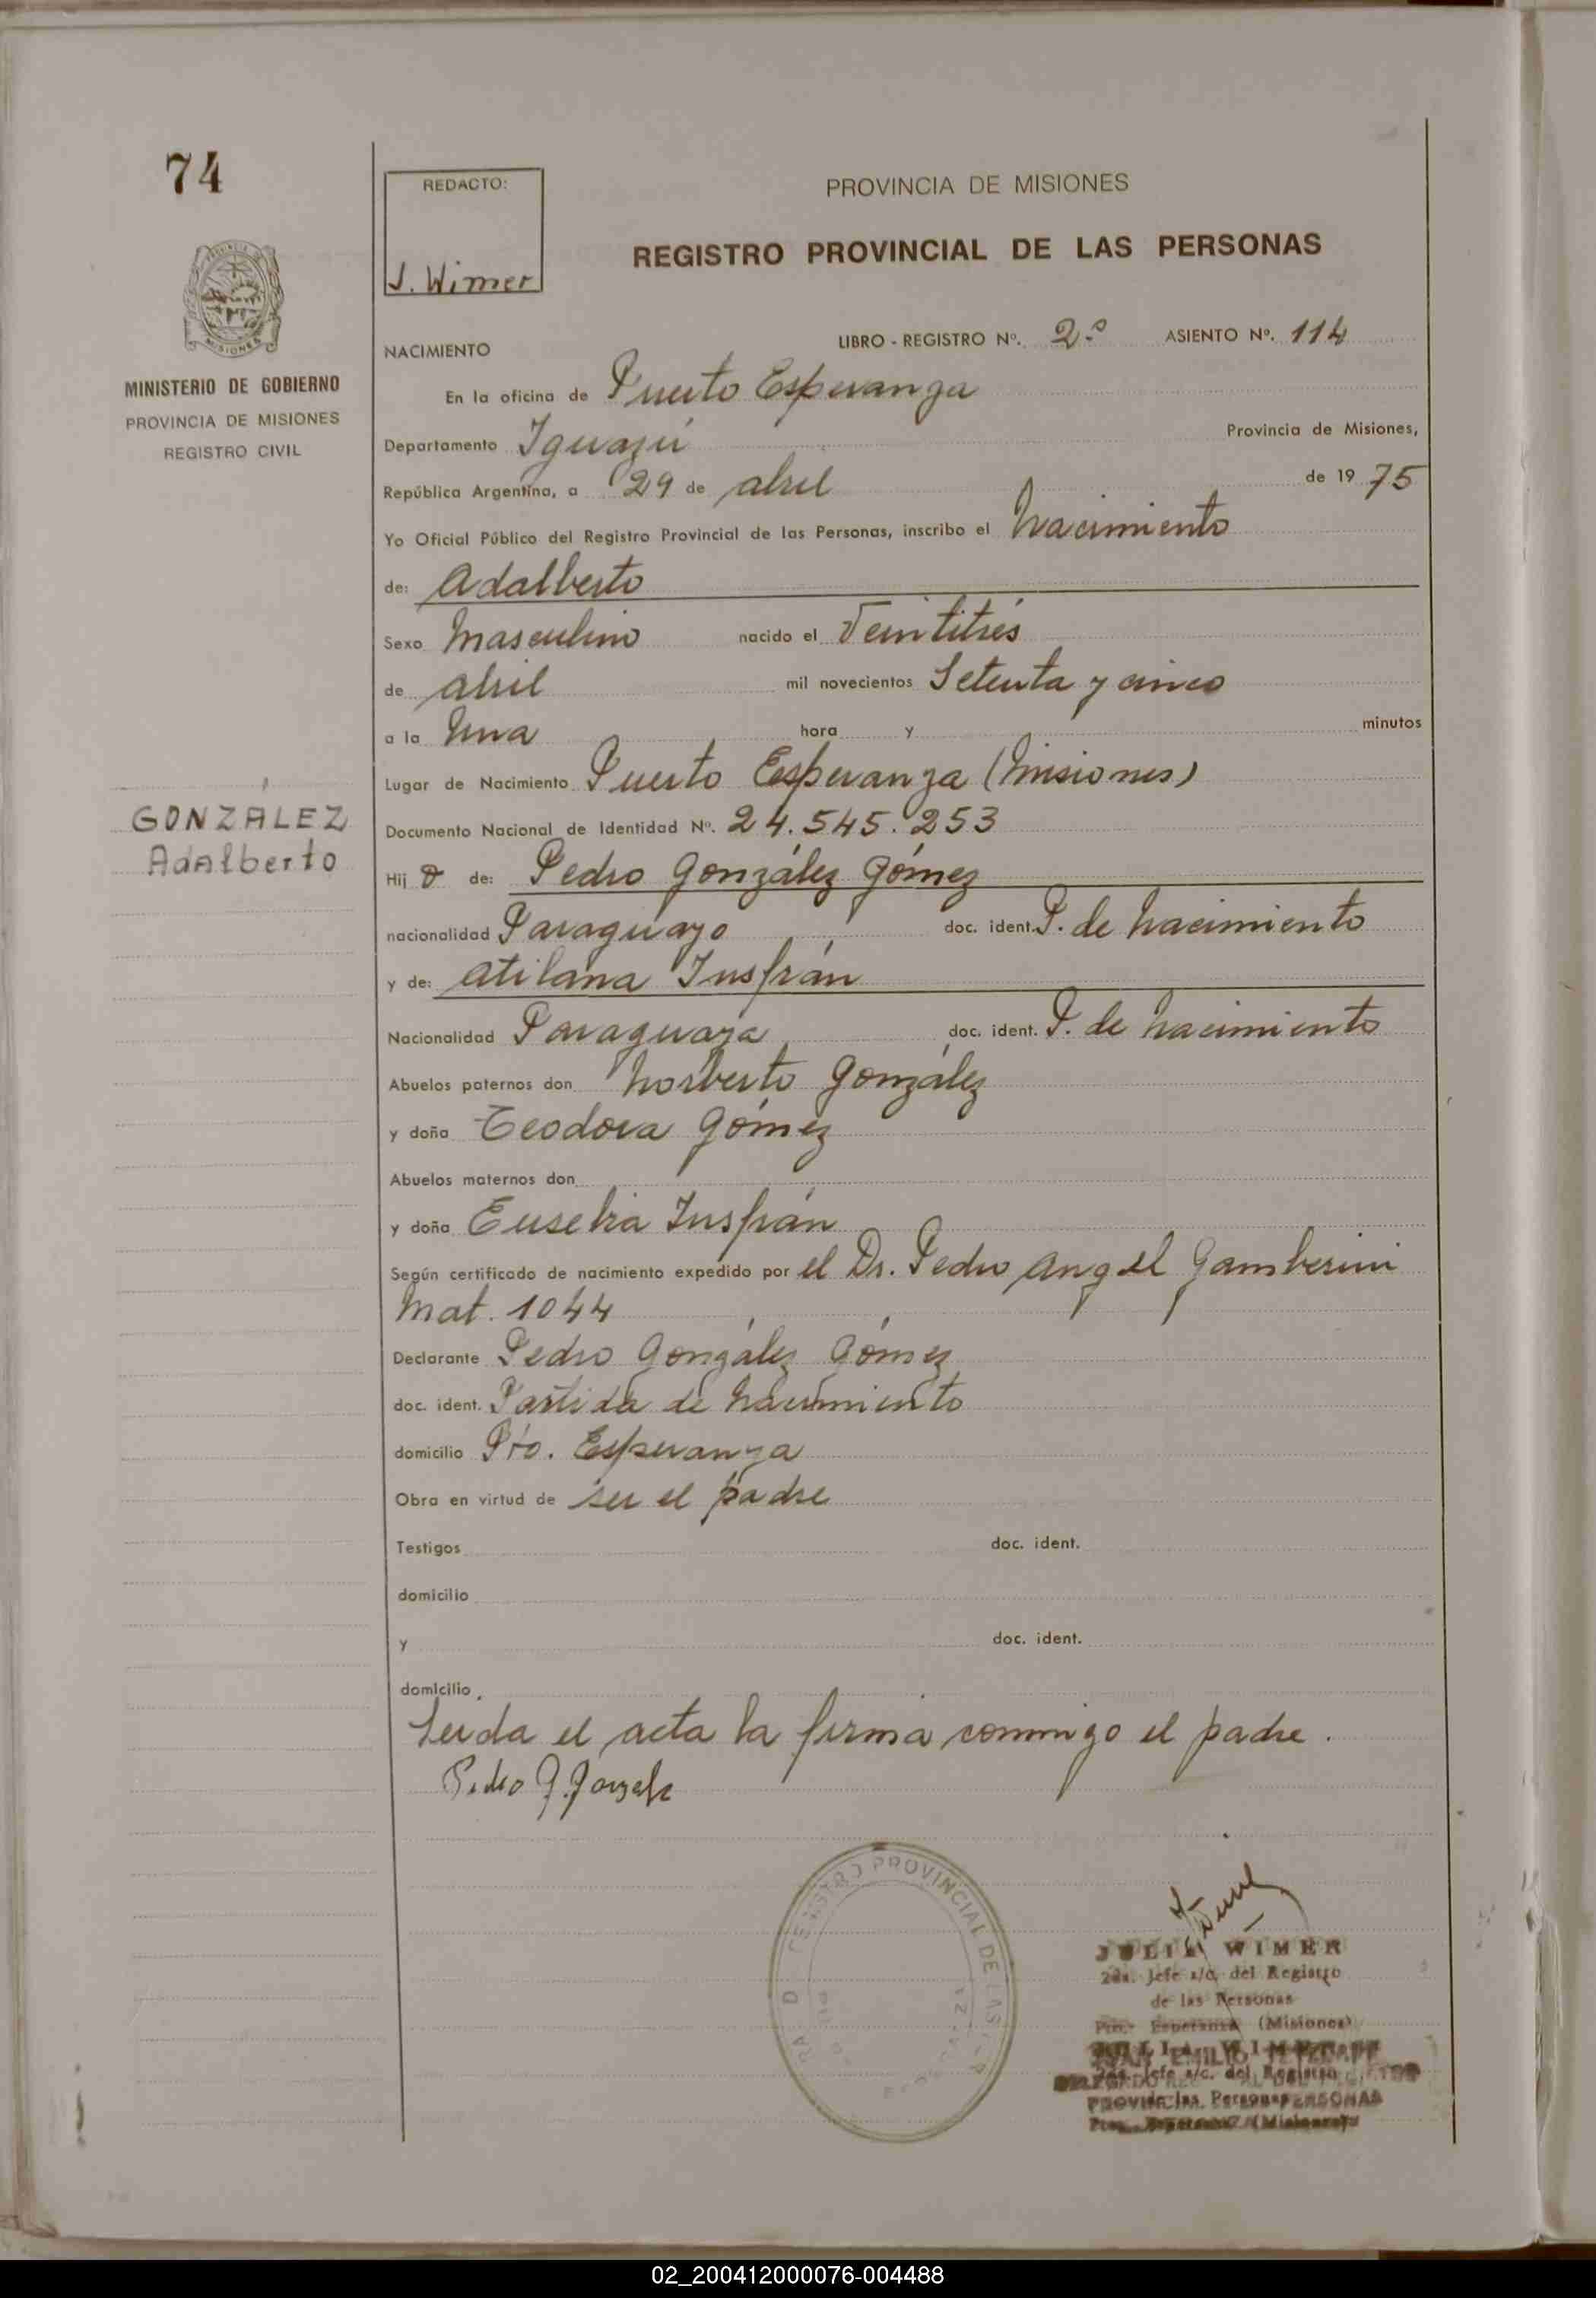 74
REDACTO:
J. Wimer
PROVINCIA DE MISIONES
REGISTRO PROVINCIAL DE LAS PERSONAS
MISIONES
MINISTERIO DE GOBIERNO
PROVINCIA DE MISIONES
REGISTRO CIVIL
NACIMIENTO LIBRO - REGISTRO Nº. 2º ASIENTO Nº. 114
En la oficina de Puerto Esperanza
Departamento Iguazú Provincia de Misiones,
República Argentina, a 29 de abril de 19 75
Yo Oficial Público del Registro Provincial de las Personas, inscribo el Nacimiento
de: Adalberto
Sexo Masculino nacido el Veintitrés
de abril mil novecientos Setenta y cinco
a la Una hora y minutos
Lugar de Nacimiento Puerto Esperanza (Misiones)
GONZÁLEZ
Adalberto
Documento Nacional de Identidad Nº. 24.545.253
Hij o de: Pedro González Gómez
nacionalidad Paraguayo doc. ident. P. de Nacimiento
y de: Atilana Insfrán
Nacionalidad Paraguaya doc. ident. P. de Nacimiento
Abuelos paternos don Norberto González
y doña Teodora Gómez
Abuelos maternos don
y doña Eusebia Insfrán
Según certificado de nacimiento expedido por el Dr. Pedro Angel Gamberini
Mat. 1044
Declarante Pedro González Gómez
doc. ident. Partida de Nacimiento
domicilio Pto. Esperanza
Obra en virtud de ser el padre
Testigos doc. ident.
domicilio
y doc. ident.
domicilio
Leida el acta la firma conmigo el padre.
Pedro G. Gonzalz
REGISTRO PROVINCIAL DE LAS
JULIA WIMER
2da. Jefe a/c. del Registro
de las Personas
Pto. Esperanza (Misiones)
02_200412000076-004488